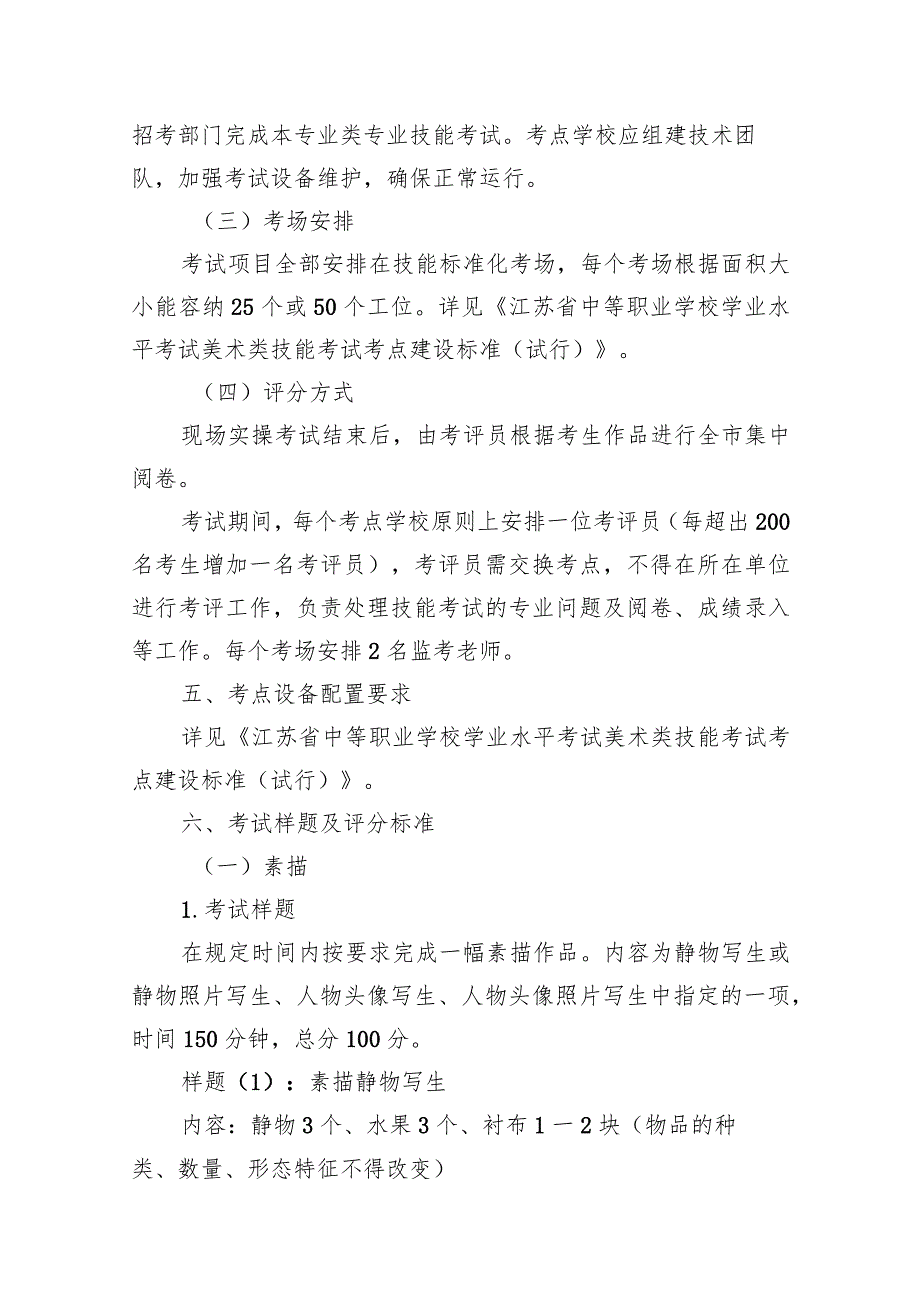 招考部门完成本专业类专业技能考试。考点学校应组建技术团
队，加强考试设备维护，确保正常运行。
（三）考场安排
考试项目全部安排在技能标准化考场，每个考场根据面积大
小能容纳 25 个或 50 个工位。详见《江苏省中等职业学校学业水
平考试美术类技能考试考点建设标准（试行）》。
（四）评分方式
现场实操考试结束后，由考评员根据考生作品进行全市集中
阅卷。
考试期间，每个考点学校原则上安排一位考评员（每超出 200
名考生增加一名考评员），考评员需交换考点，不得在所在单位
进行考评工作，负责处理技能考试的专业问题及阅卷、成绩录入
等工作。每个考场安排 2 名监考老师。
五、考点设备配置要求
详见《江苏省中等职业学校学业水平考试美术类技能考试考
点建设标准（试行）》。
六、考试样题及评分标准
（一）素描
1.考试样题
在规定时间内按要求完成一幅素描作品。内容为静物写生或
静物照片写生、人物头像写生、人物头像照片写生中指定的一项，
时间 150 分钟，总分 100 分。
样题（1）：素描静物写生
内容：静物 3 个、水果 3 个、衬布 1 一 2 块（物品的种
类、数量、形态特征不得改变）